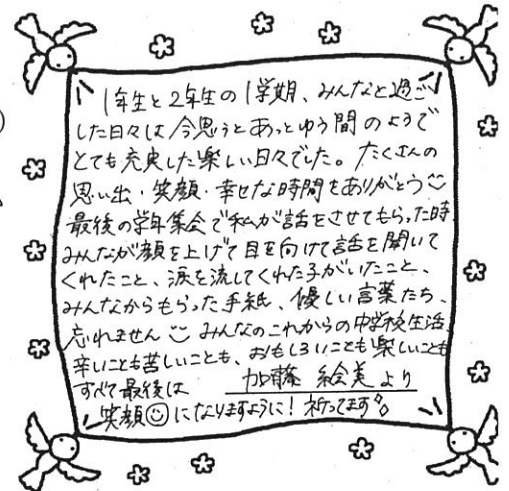 1年生と2年生の1学期、みんなと過ご
した日々は今思うとあっとゆう間のようで
とても充実した楽しい日々でした。たくさんの
思い出・笑顔・幸せな時間をありがとう
最後の学年集会で私が話をさせてもらった時、
みんなが顔を上げて目を向けて話を聞いて
くれたこと、涙を流してくれた子がいたこと、
みんなからもらった手紙、優しい言葉たち、
忘れません みんなのこれからの中学校生活、
辛いことも苦しいことも、おもしろいことも楽しいことも
すべて最後は
笑顔になりますように!祈ってます。
加藤 絵美より